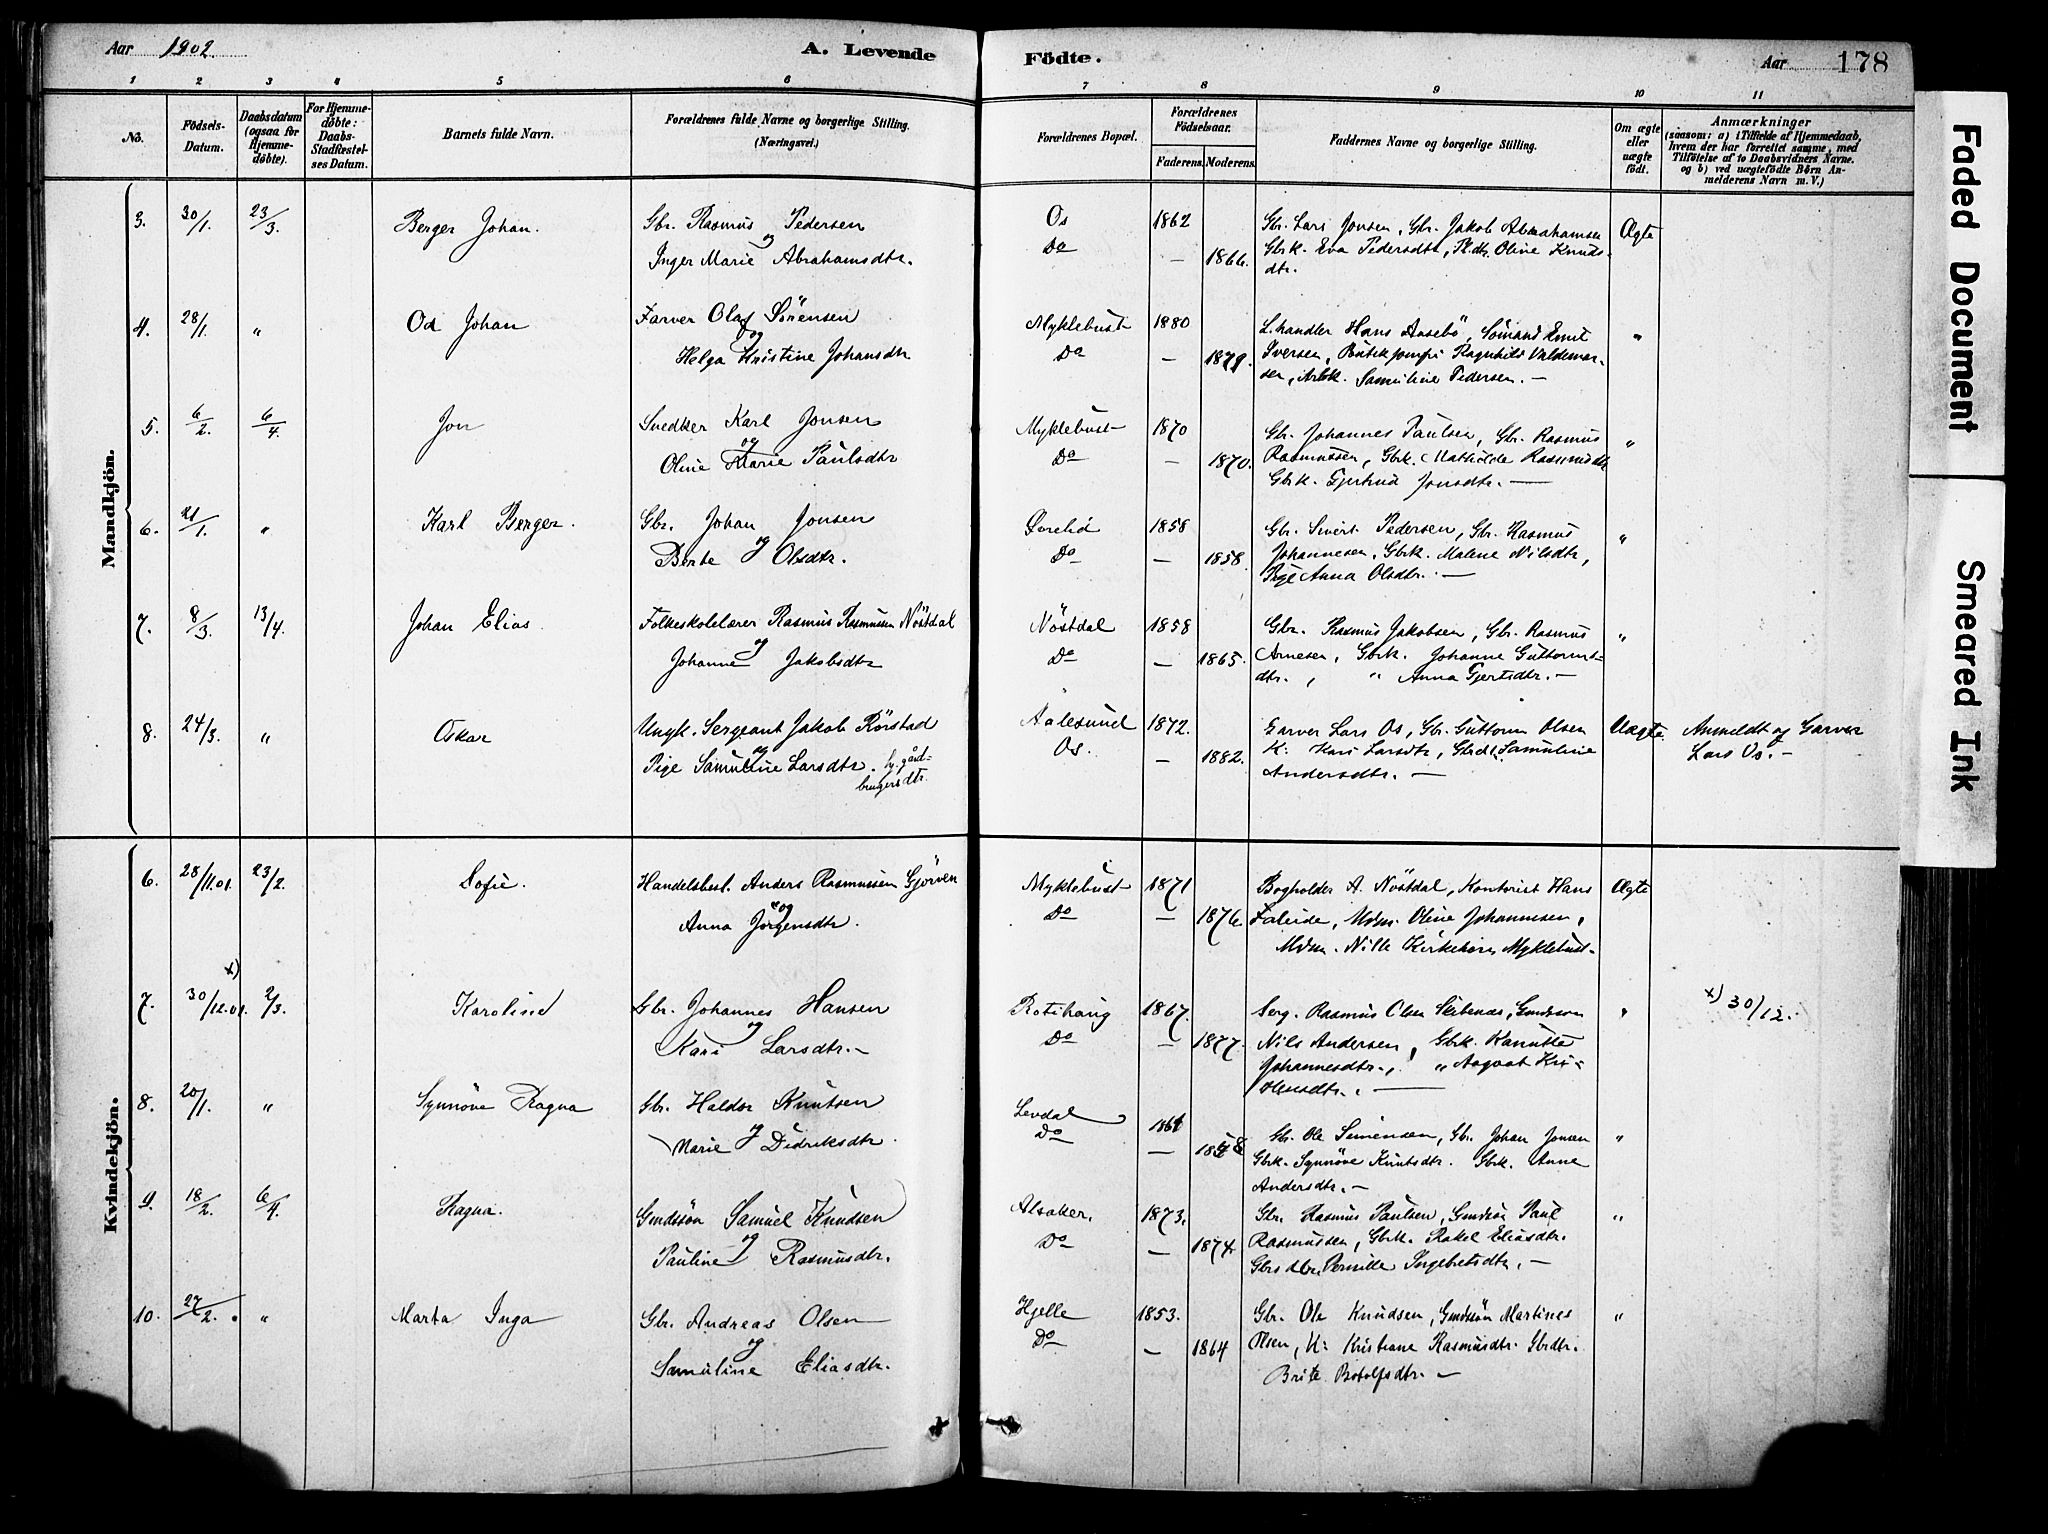 Aar 1902.
A. Levende Födte.
Aar 178
1 2 3 4 5 6 7 8 9 10 11
No.
Födsels-Datum.
Daabsdatum (ogsaa for Hjemme-döbte).
For Hjemme-döbte: Daabs-Stadfæstel-ses Datum.
Barnets fulde Navn.
Forældrenes fulde Navne og borgerlige Stilling. (Næringsvei.)
Forældrenes Bopæl.
Forældrenes Födselsaar.
Faderens. Moderens.
Faddernes Navne og borgerlige Stilling.
Om ægte eller uægte födt.
Anmærkninger
(saasom: a) i Tilfælde af Hjemmedaab, hvem der har forrettet samme, med Tilföielse af to Daabsvidners Navne, og b) ved uægtefödte Börn Anmelderens Navn m. V.)
Mandkjön.
3. 30/1. 23/3. Berger Johan. Gbr. Rasmus Pedersen Os 1862 Gbr. Lars Jonsen, Gbr. Jakob Abrahamsen Ægte
og
Inger Marie Abrahamsdtr. Do — 1866. Gbrk. Eva Pedersdtr, Oline Knuds-
dtr.
4. 28/1. " Od Johan Farver Olaf Sörensen Myklebust 1880 L.handler Hans Aasebö, Sömand Emil "
og
Helga Kristine Johansdtr Do — 1879. Iversen, Butikjomfr Ragnhild Valdemar-
sen, Arbk. Samuline Pedersen. —
5. 6/2. 6/4. Jon Snedker Karl Jonsen Myklebust 1870 Gbr. Johannes Paulsen, Gbr. Rasmus "
og
Oline Marie Paulsdtr Do — 1870. Rasmussen, Gbrk. Mathilde Rasmusdtr
Gbrk. Gjertrud Jonsdtr. —
6. 21/1. " Karl Berger. Gbr. Johan Jonsen Övrelid 1858 Gbr. Sivert Pedersen, Gbr. Rasmus "
og
Berte Olsdtr. Do — 1858. Johannesen, Gbrk. Malene Nilsdtr,
Pige Anna Olsdtr. —
7. 8/3. 13/4. Johan Elias. Folkeskolelærer Rasmus Rasmussen Nöstdal Nöstdal 1858 Gbr. Rasmus Jakobsen, Gbr. Rasmus "
og
Johanne Jakobsdtr Do — 1865. Arnesen, Gbrk. Johanne Guttorms-
dtr., " Anna Gjertsdtr. —
8. 24/3. " Oskar Ungk. Sergeant Jakob Rörstad Aalesund 1872. Garver Lars Os, Gbr. Guttorm Olsen Uægte. Anmeldt af Garver
og
Pige Samuline Larsdtr. gård-brugersdtr. Os. — 1882. K: Kari Larsdtr, Gbrdtr. Samuline Lars Os. —
Andersdtr. —
Kvindekjön.
6. 28/11.01. 23/2. Sofie. Handelsbest. Anders Rasmussen Gjörven Myklebust 1871 Bogholder A. Nöstdal, Kontorist Hans Ægte
og
Anna Jörgensdtr. Do — 1876. Faleide, Mdm. Oline Johannesen,
Mdm. Nille Kirkehorn Myklebust —
x)
7. 30/12.01. 2/3. Karoline Gbr. Johannes Hansen Rotihaug 1867. Serg. Rasmus Olsen Skibenes, Gmdssön " x) 30/12.
og
Kari Larsdtr. — Do — 1877. Nils Andersen, Gbrk. Kanutte
Johannesdtr., " Aagaat Kri-
stensdtr. —
8. 20/1. " Synnöve Ragna Gbr. Haldor Knutsen Levdal 1861 Gbr. Ole Simensen, Gbr. Johan Jonsen "
og
Marie Didriksdtr. Do — Gbrk. Synnöve Knutsdtr. Gbrk. Anne
Andersdtr. —
9. 18/2. 6/4. Ragna. Gmdssön Samuel Knudsen Alsaker. 1873. Gbr. Rasmus Paulsen, Gmdssön Paul "
og
Pauline Rasmusdtr. Do — 1874. Rasmussen, Gbrk. Rakel Eliasdtr.
Gbrsdtr. Pernille Ingebretsdtr. —
10. 27/2. " Marta Inga Gbr. Andreas Olsen Hjelle 1853. Gbr. Ole Knudsen, Gmdssön Martines "
og
Samuline Eliasdtr. Do — 1864 Olsen, K: Kristiane Rasmusdtr. Gbrdtr.
Brite Botolfsdtr. —
Faded Document
Smeared Ink